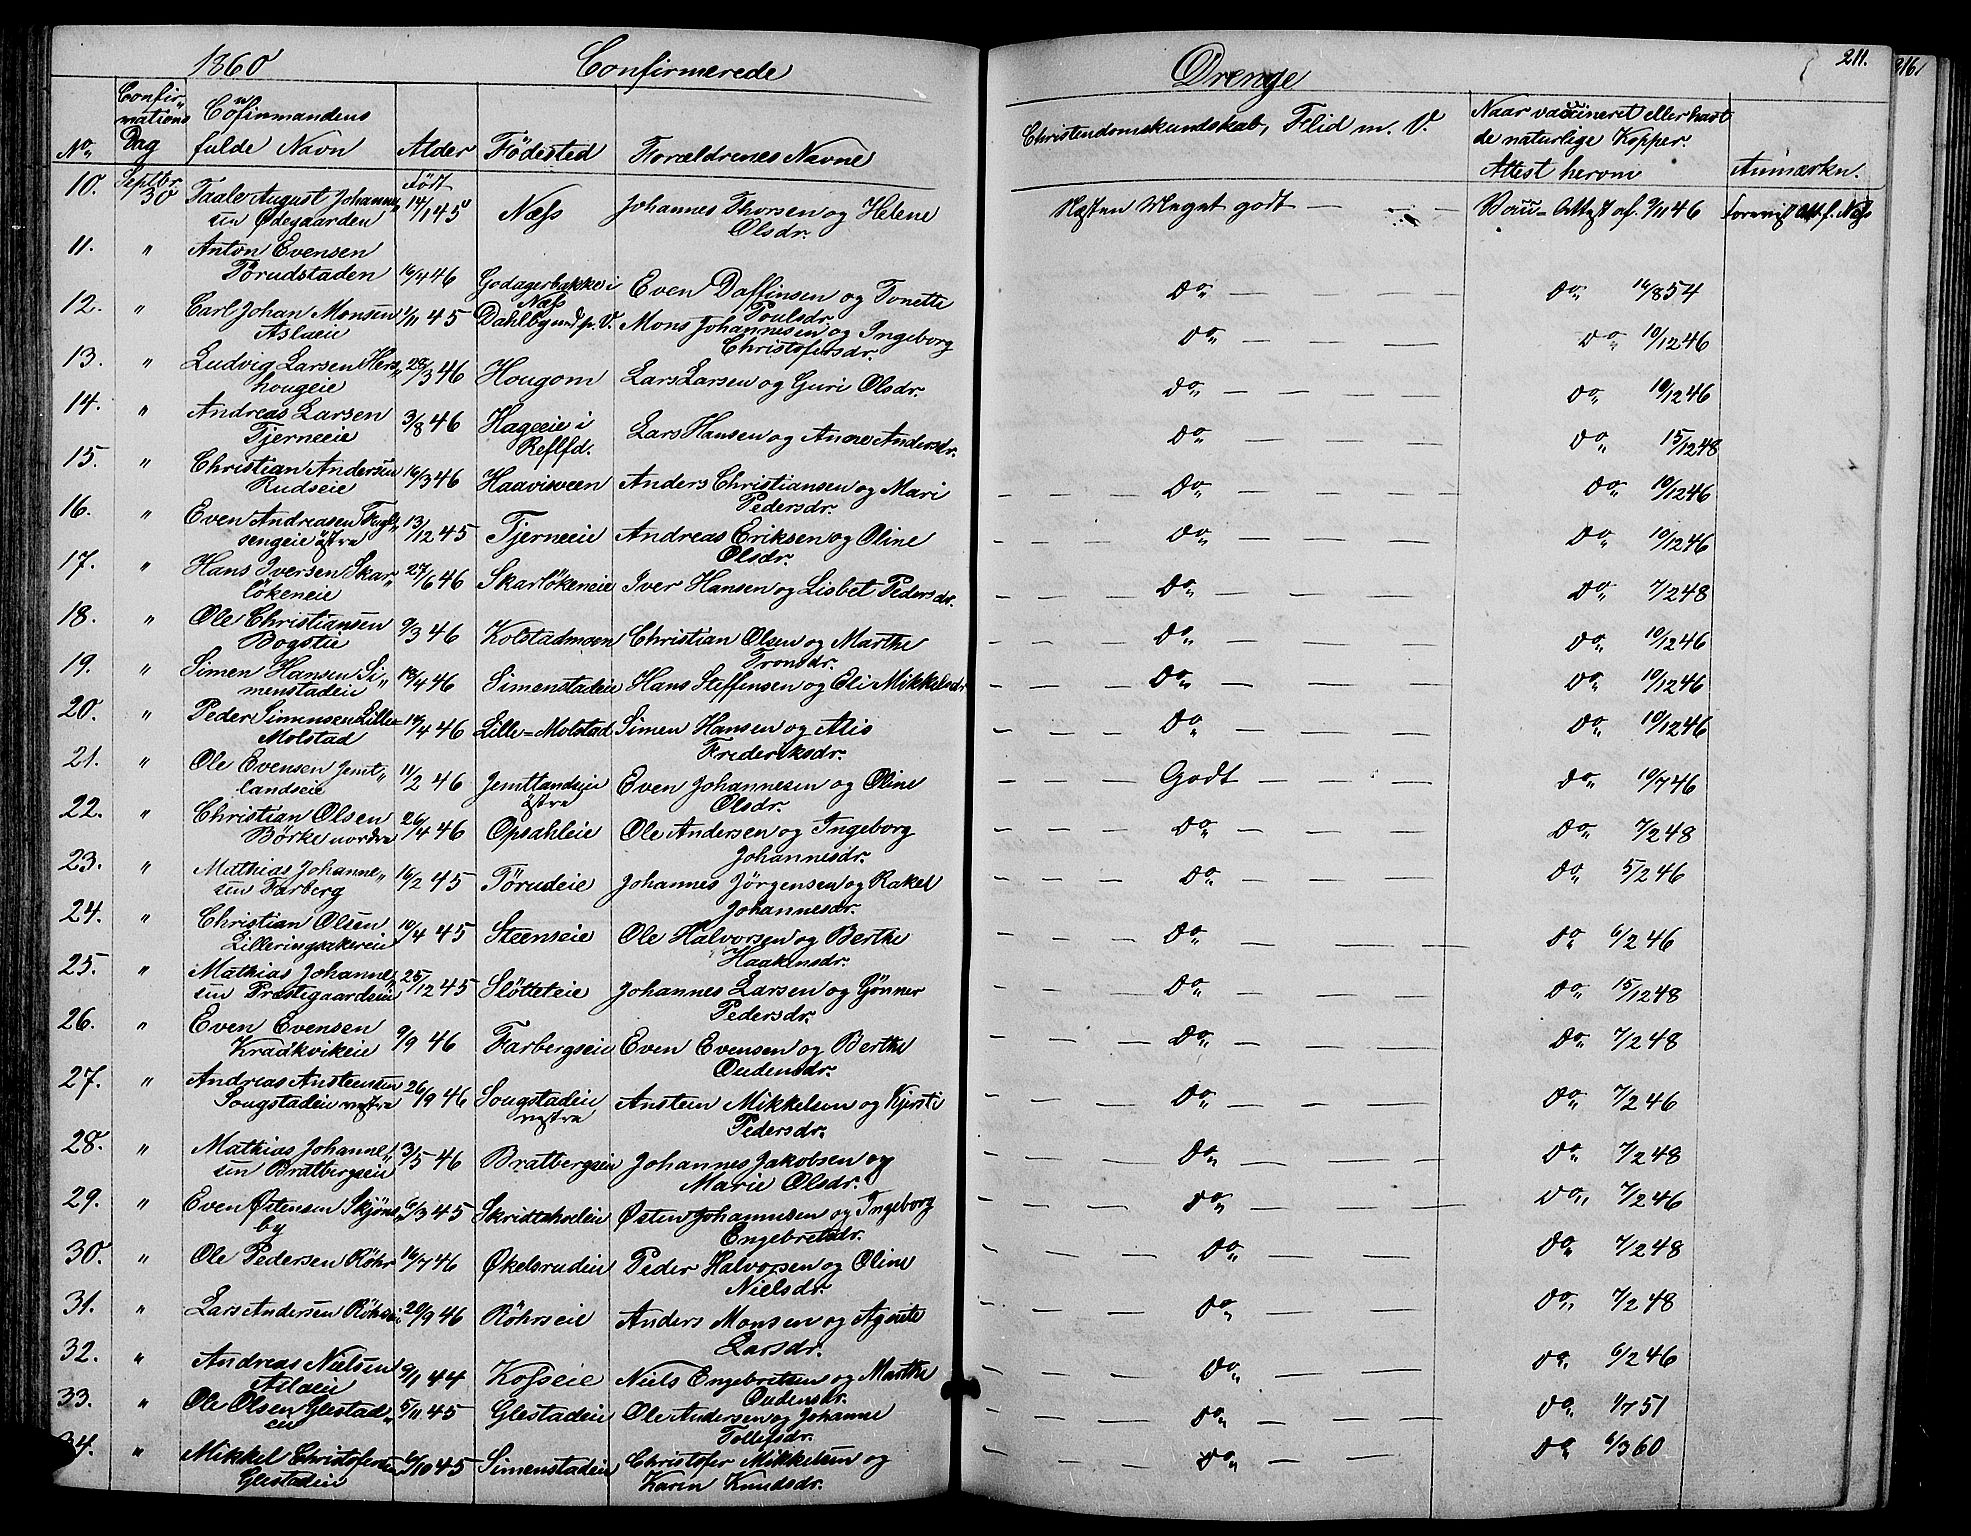 1860 Confirmerede Drenge 211. 216.
No. Confirmations Dag Cofinmandens fulde Navn Alder Födested Forældrenes Navne Christendomskundskab, Flid m. V. Naar vaccineret eller havt de naturlige Kopper. Attest herom Anmærkn.
10. Septbr. 30 Taale August Johannessen Ødegaarden Født 14/1 45 Næss Johannes Thorsen og Helene Olsdr. Næsten Meget godt — — — Vacc- Attest af 9/11 46
11. " Anton Evensen Torudstaden 16/4 46 Godagerbakke i Næss Even Daffinsen og Tonette Poulsdr. Do — — — — Do 14/8 54
12. " Carl Johan Monsen Aslaeie 1/11 45 Mons Johannesen og Ingeborg Christofersdr. Do — — — — Do 10/12 46
13. " Ludvig Larsen Hershougeie 28/3 46 Hougom Lars Larsen og Guri Olsdr. Do — — — — Do 10/12 46
14. " Andreas Larsen Tjerneeie 3/8 46 Hageeie i Reflfd. Lars Hansen og Anne Andersdr. Do — — — — Do 15/12 48
15. " Christian Andersen Rudseie 16/3 46 Haavisveen Anders Christiansen og Mari Pedersdr. Do — — — — Do 10/12 46
16. " Even Andreasen Fuglsengeie östre 13/12 45 Tjerneeie Andreas Eriksen og Oline Olsdr. Do — — — — Do 10/12 46
17. " Hans Iversen Skarlökeneie 27/6 46 Skarlökeneie Iver Hansen og Lisbet Pedersdr. Do — — — — Do 7/2 48
18. " Ole Christiansen Bogstie 9/3 46 Kolstadmoen Christian Olsen og Marthe Tronsdr. Do — — — — Do 10/12 46
19. " Simen Hansen Simenstadeie 18/4 46 Simenstadeie Hans Steffensen og Eli Mikkelsdr. Do — — — — Do 10/12 46
20. " Peder Simensen Lille-Molstad 19/4 46 Lille-Molstad Simen Hansen og Alis Frederiksdr. Do — — — — Do 10/12 46
21. " Ole Evensen Jemtlandseie 11/2 46 Jemtlandseie östre Even Johannesen og Oline Olsdr. Godt — — — — Do 10/7 46
22. " Christian Olsen Börke nordre 26/4 46 Opsahleie Ole Andersen og Ingeborg Johannesdr. Do — — — — Do 7/2 48
23. " Mathias Johannessen Farberg 16/2 45 Törudeie Johannes Jörgensen og Rakel Johannesdr. Do — — — — Do 5/2 46
24. " Christian Olsen Lilleringsakereie 10/4 45 Steenseie Ole Halvorsen og Berthe Haakensdr. Do — — — — Do 6/2 46
25. " Mathias Johannessen Præstegaardseie 25/12 45 Slötteteie Johannes Larsen og Gönner Pedersdr. Do — — — — Do 15/12 48
26. " Even Evensen Kraakvikeie 9/9 46 Farbergseie Even Evensen og Berthe Oudensdr. Do — — — — Do 7/2 48
27. " Andreas Ansteensen Sougstadeie vestre 26/9 46 Sougstadeie vestre Anstein Mikkelsen og Kjersti Pedersdr. Do — — — — Do 7/2 46
28. " Mathias Johannessen Bratbergseie 3/5 46 Bratbergseie Johannes Jakobsen og Marie Olsdr. Do — — — — Do 7/2 48
29. " Even Østensen Skjönsby 6/3 45 Østen Johannesen og Ingeborg Engebretsdr. Do — — — — Do 7/2 46
30. " Ole Pedersen Röhr 16/7 46 Økelsrudeie Peder Halvorsen og Oline Nielsdr. Do — — — — Do 7/2 48
31. " Lars Andersen Röhrseie 20/9 46 Röhrseie Anders Monsen og Agnete Larsdr. Do — — — — Do 7/2 48
32. " Andreas Nielsen Aslaeie 9/1 44 Kosseie Niels Engebretsen og Marthe Oudensdr. Do — — — — Do 6/2 46
33. " Ole Olsen Glestadeie 5/11 45 Glestadeie Ole Andersen og Johanne Tollefsdr. Do — — — — Do 1/7 51
34. " Mikkel Christofersen Glestadeie 6/10 45 Simenstadeie Christofer Mikkelsen og Karin Knudsdr. Do — — — — Do 6/3 60